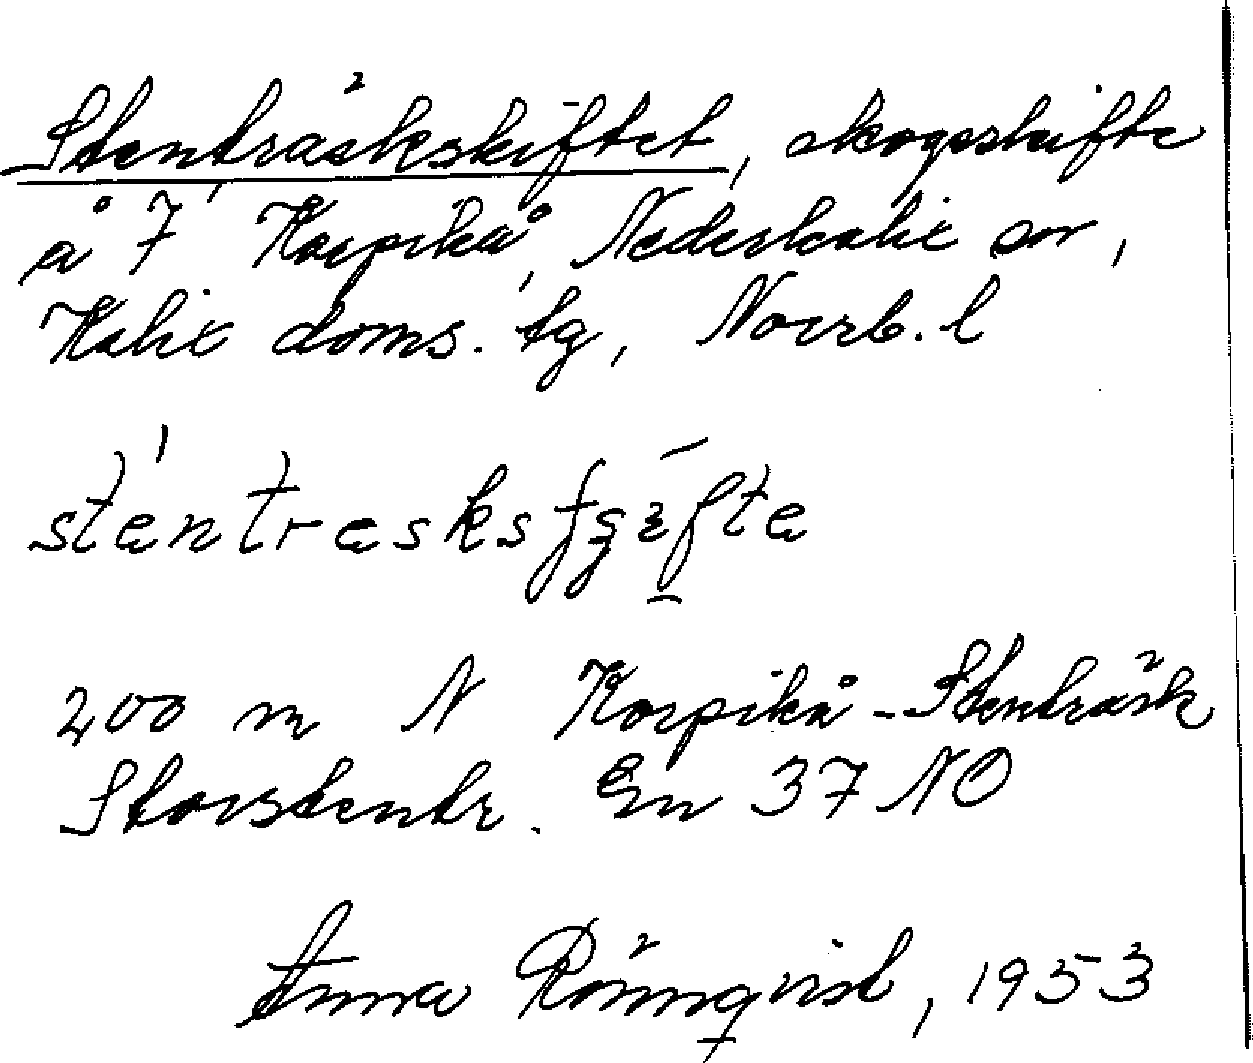 Stenträskskiftet, skogsskifte
å 7 Korpikå, Nederkalix sn,
Kalix doms. tg, Norrb. l
200 m N Korpikå-Stenträsk
Storstentr. En 37 NO
Anna Rönnqvist, 1953